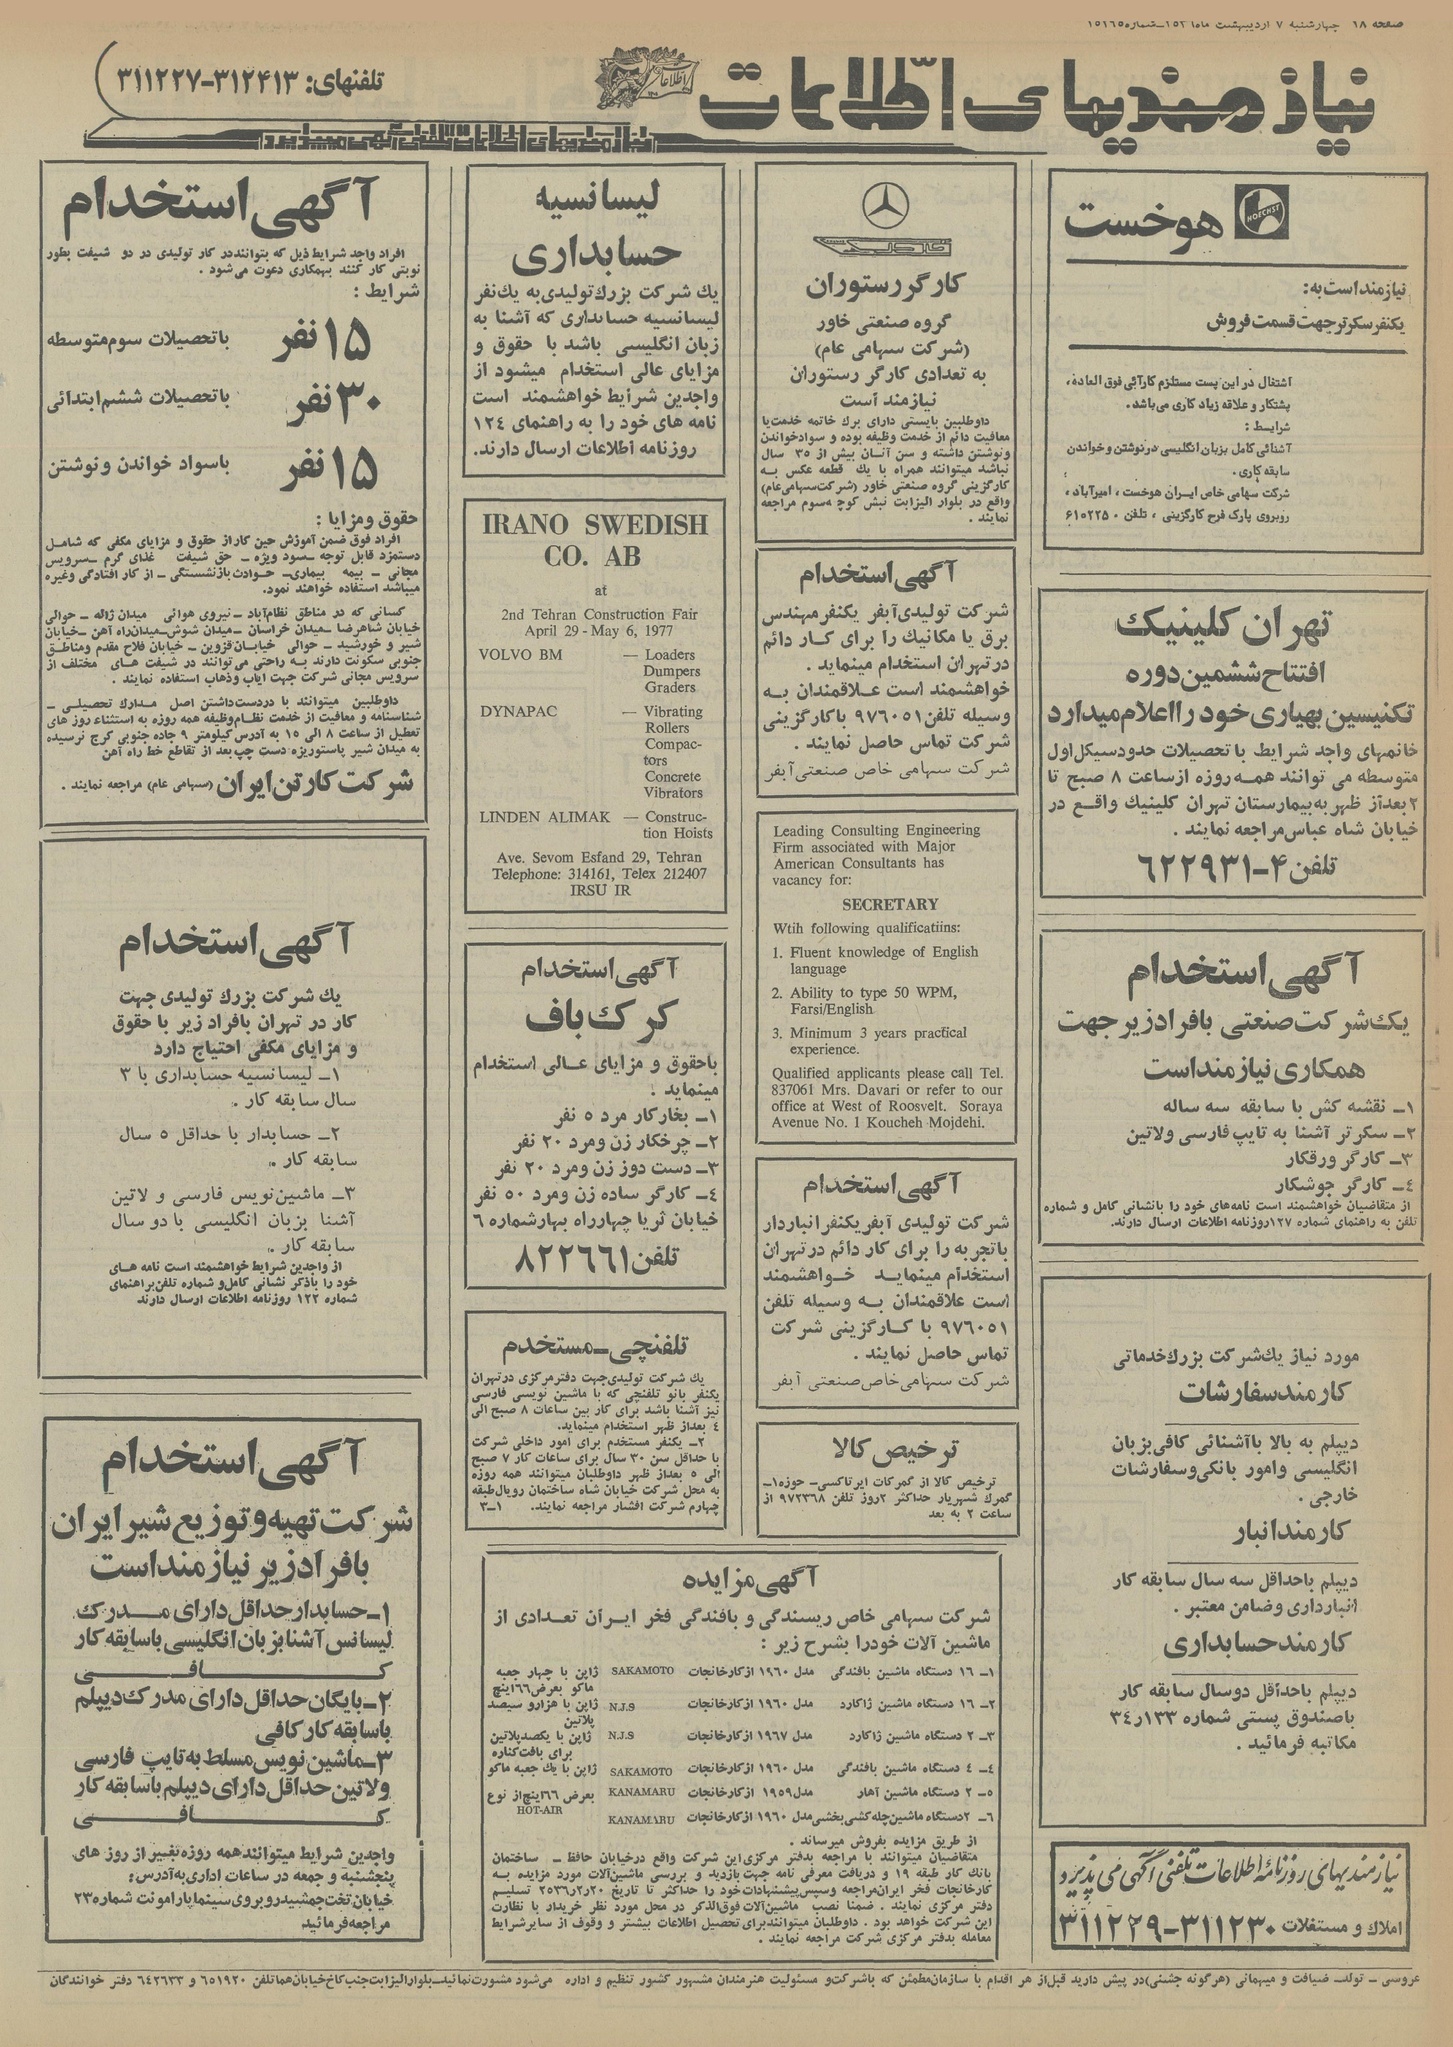 صفحه ۱۸ چهارشنبه ۷ اردیبهشت ماه
نیازمندیهای اطلاعات
تلفنهای: ۳۱۲۴۱۳-۳۱۱۲۲۷
HOECHST
هوخست
نیازمند است به:
یکنفر سکرتر جهت قسمت فروش
اشتغال در این پست مستلزم کارآئی فوق العاده،
پشتکار و علاقه زیاد کاری می‌باشد.
شرایط :
آشنائی کامل بزبان انگلیسی در نوشتن و خواندن
سابقه کاری.
شرکت سهامی خاص ایران هوخست ، امیرآباد،
روبروی پارک فرح کارگزینی ، تلفن ۶۱۰۲۲۵۰
تهران کلینیک
افتتاح ششمین دوره
تکنیسین بهیاری خود را اعلام میدارد
خانمهای واجد شرایط با تحصیلات حدود سیکل اول
متوسطه می توانند همه روزه از ساعت ۸ صبح تا
۲ بعداز ظهر به بیمارستان تهران کلینیک واقع در
خیابان شاه عباس مراجعه نمایند .
تلفن ۴-۶۲۲۹۳۱
آگهی استخدام
یک شرکت صنعتی بافراد زیر جهت
همکاری نیازمند است
۱ـ نقشه کش با سابقه سه ساله
۲ـ سکرتر آشنا به تایپ فارسی ولاتین
۳ـ کارگر ورقکار
۴ـ کارگر جوشکار
از متقاضیان خواهشمند است نامه‌های خود را بانشانی کامل و شماره
تلفن به راهنمای شماره ۱۲۷ روزنامه اطلاعات ارسال دارند.
مورد نیاز یک شرکت بزرک خدماتی
کارمند سفارشات
دیپلم به بالا باآشنائی کافی بزبان
انگلیسی وامور بانکی وسفارشات
خارجی .
کارمند انبار
دیپلم باحداقل سه سال سابقه کار
انبارداری وضامن معتبر .
کارمند حسابداری
دیپلم باحداقل دوسال سابقه کار
باصندوق پستی شماره ۳۴ر۱۳۳
مکاتبه فرمائید .
نیازمندیهای روزنامه اطلاعات تلفنی آگهی می پذیرد
املاک و مستغلات ۳۱۱۲۳۰-۳۱۱۲۲۹
کارگر رستوران
گروه صنعتی خاور
(شرکت سهامی عام)
به تعدادی کارگر رستوران
نیازمند است
داوطلبین بایستی دارای برک خاتمه خدمت یا
معافیت دائم از خدمت وظیفه بوده و سواد خواندن
ونوشتن داشته و سن آنان بیش از ۳۵ سال
نباشد میتوانند همراه با یک قطعه عکس به
کارگزینی گروه صنعتی خاور (شرکت سهامی عام)
واقع در بلوار الیزابت نبش کوچه سوم مراجعه
نمایند .
آگهی استخدام
شرکت تولیدی آبفر یکنفر مهندس
برق یا مکانیک را برای کار دائم
در تهران استخدام مینماید .
خواهشمند است علاقمندان به
وسیله تلفن ۹۷۶۰۵۱ با کارگزینی
شرکت تماس حاصل نمایند .
شرکت سهامی خاص صنعتی آبفر
Leading Consulting Engineering
Firm associated with Major
American Consultants has
vacancy for:
SECRETARY
Wtih following qualificatiins:
1. Fluent knowledge of English
language
2. Ability to type 50 WPM,
Farsi/English
3. Minimum 3 years practical
experience.
Qualified applicants please call Tel.
837061 Mrs. Davari or refer to our
office at West of Roosvelt. Soraya
Avenue No. 1 Koucheh Mojdehi.
آگهی استخدام
شرکت تولیدی آبفر یکنفر انباردار
باتجربه را برای کار دائم در تهران
استخدام مینماید خواهشمند
است علاقمندان به وسیله تلفن
۹۷۶۰۵۱ با کارگزینی شرکت
تماس حاصل نمایند .
شرکت سهامی خاص صنعتی آبفر
ترخیص کالا
ترخیص کالا از گمرکات ایرتاکسی- حوزه۱-
گمرک شهریار حداکثر ۲روز تلفن ۹۷۲۳۶۸ از
ساعت ۲ به بعد
لیسانسیه
حسابداری
یک شرکت بزرک تولیدی به یک نفر
لیسانسیه حسابداری که آشنا به
زبان انگلیسی باشد با حقوق و
مزایای عالی استخدام میشود از
واجدین شرایط خواهشمند است
نامه های خود را به راهنمای ۱۲۴
روزنامه اطلاعات ارسال دارند.
IRANO SWEDISH
CO. AB
at
2nd Tehran Construction Fair
April 29 - May 6, 1977
VOLVO BM — Loaders
Dumpers
Graders
DYNAPAC — Vibrating
Rollers
Compac-
tors
Concrete
Vibrators
LINDEN ALIMAK — Construc-
tion Hoists
Ave. Sevom Esfand 29, Tehran
Telephone: 314161, Telex 212407
IRSU IR
آگهی استخدام
کرک باف
باحقوق و مزایای عالی استخدام
مینماید .
۱ـ بخارکار مرد ۵ نفر
۲ـ چرخکار زن ومرد ۲۰ نفر
۳ـ دست دوز زن ومرد ۲۰ نفر
۴ـ کارگر ساده زن ومرد ۵۰ نفر
خیابان ثریا چهارراه بهار شماره ۶
تلفن ۸۲۲۶۶۱
تلفنچی ـ مستخدم
یک شرکت تولیدی جهت دفتر مرکزی در تهران
یکنفر بانو تلفنچی که با ماشین نویسی فارسی
نیز آشنا باشد برای کار بین ساعات ۸ صبح الی
۴ بعداز ظهر استخدام مینماید.
۲ـ یکنفر مستخدم برای امور داخلی شرکت
با حداقل سن ۳۰ سال برای ساعات کار ۷ صبح
الی ۵ بعداز ظهر داوطلبان میتوانند همه روزه
به محل شرکت خیابان شاه ساختمان رویال طبقه
چهارم شرکت افشار مراجعه نمایند. ۱ـ۳
آگهی مزایده
شرکت سهامی خاص ریسندگی و بافندگی فخر ایران تعدادی از
ماشین آلات خودرا بشرح زیر :
۱ـ ۱۶ دستگاه ماشین بافندگی مدل ۱۹۶۰ ازکارخانجات SAKAMOTO ژاپن با چهار جعبه
ماکو بعرض ۶۶اینچ
۲ـ ۱۶ دستگاه ماشین ژاکارد مدل ۱۹۶۰ ازکارخانجات N.J.S ژاپن با هزارو سیصد
پلاتین
۳ـ ۲ دستگاه ماشین ژاکارد مدل ۱۹۶۷ ازکارخانجات N.J.S ژاپن با یکصدپلاتین
برای بافت کناره
۴ـ ۴ دستگاه ماشین بافندگی مدل ۱۹۶۰ ازکارخانجات SAKAMOTO ژاپن با یک جعبه ماکو
۵ـ ۲ دستگاه ماشین آهار مدل ۱۹۵۹ ازکارخانجات KANAMARU بعرض ۶۶اینچ از نوع
HOT-AIR
۶ـ ۲دستگاه ماشین چله کشی بخشی مدل ۱۹۶۰ ازکارخانجات KANAMARU
از طریق مزایده بفروش میرساند .
متقاضیان میتوانند با مراجعه بدفتر مرکزی این شرکت واقع در خیابان حافظ ـ ساختمان
بانک کار طبقه ۱۹ و دریافت معرفی نامه جهت بازدید و بررسی ماشین آلات مورد مزایده به
کارخانجات فخر ایران مراجعه وسپس پیشنهادات خود را حداکثر تا تاریخ ۲۰ر۲ر۲۵۳۶ تسلیم
دفتر مرکزی نمایند . ضمنا نصب ماشین آلات فوق الذکر در محل مورد نظر خریدار با نظارت
این شرکت خواهد بود . داوطلبان میتوانند برای تحصیل اطلاعات بیشتر و وقوف از سایر شرایط
معامله بدفتر مرکزی شرکت مراجعه نمایند .
آگهی استخدام
افراد واجد شرایط ذیل که بتوانند در کار تولیدی در دو شیفت بطور
نوبتی کار کنند بهمکاری دعوت می‌شود .
شرایط :
۱۵ نفر باتحصیلات سوم متوسطه
۳۰ نفر باتحصیلات ششم ابتدائی
۱۵ نفر باسواد خواندن ونوشتن
حقوق ومزایا :
افراد فوق ضمن آموزش حین کار از حقوق و مزایای مکفی که شامل
دستمزد قابل توجه ـ سود ویژه ـ حق شیفت غذای گرم ـ سرویس
مجانی ـ بیمه بیماری ـ حوادث بازنشستگی ـ از کار افتادگی وغیره
میباشد استفاده خواهند نمود.
کسانی که در مناطق نظام‌آباد ـ نیروی هوائی میدان ژاله ـ حوالی
خیابان شاهرضا ـ میدان خراسان ـ میدان شوش ـ میدان راه آهن ـ خیابان
شیر و خورشید ـ حوالی خیابان قزوین ـ خیابان فلاح مقدم ومناطق
جنوبی سکونت دارند به راحتی می‌توانند در شیفت های مختلف از
سرویس مجانی شرکت جهت ایاب وذهاب استفاده نمایند .
داوطلبین میتوانند با دردست داشتن اصل مدارک تحصیلی ـ
شناسنامه و معافیت از خدمت نظام وظیفه همه روزه به استثناء روز های
تعطیل از ساعت ۸ الی ۱۵ به آدرس کیلومتر ۹ جاده جنوبی کرج نرسیده
به میدان شیر پاستوریزه دست چپ بعد از تقاطع خط راه آهن
شرکت کارتن ایران (سهامی عام) مراجعه نمایند .
آگهی استخدام
یک شرکت بزرک تولیدی جهت
کار در تهران بافراد زیر با حقوق
و مزایای مکفی احتیاج دارد
۱ـ لیسانسیه حسابداری با ۳
سال سابقه کار .
۲ـ حسابدار با حداقل ۵ سال
سابقه کار .
۳ـ ماشین نویس فارسی و لاتین
آشنا بزبان انگلیسی با دو سال
سابقه کار .
از واجدین شرایط خواهشمند است نامه های
خود را باذکر نشانی کامل و شماره تلفن براهنمای
شماره ۱۲۲ روزنامه اطلاعات ارسال دارند
آگهی استخدام
شرکت تهیه و توزیع شیر ایران
بافراد زیر نیازمند است
۱ـ حسابدار حداقل دارای مدرک
لیسانس آشنا بزبان انگلیسی باسابقه کار
کافی
۲ـ بایگان حداقل دارای مدرک دیپلم
باسابقه کار کافی
۳ـ ماشین نویس مسلط به تایپ فارسی
ولاتین حداقل دارای دیپلم باسابقه کار
کافی
واجدین شرایط میتوانند همه روزه بغیر از روز های
پنجشنبه و جمعه در ساعات اداری به آدرس:
خیابان تخت جمشید روبروی سینما پارامونت شماره ۲۳
مراجعه فرمائید
عروسی ـ تولد ـ ضیافت و میهمانی (هرگونه جشنی) در پیش دارید قبل از هر اقدام با سازمان مطمئن که باشرکت و مسئولیت هنرمندان مشهور کشور تنظیم و اداره می‌شود مشورت نمائید ـ بلوار الیزابت جنب کاخ خیابان هما تلفن ۶۵۱۹۲۰ و ۶۴۲۶۳۳ دفتر خوانندگان